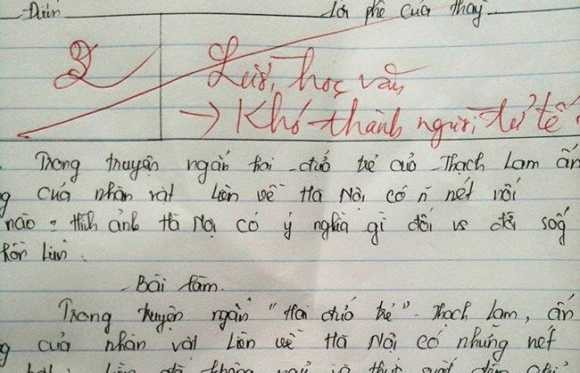 Điểm Lời phê của thầy
2 Lười học văn
→ Khó thành người tử tế
Trong truyện ngắn hai đứa trẻ của Thạch Lam ấn
g của nhân vật Liên về Hà Nội có n nét nổi
nào? Hình ảnh Hà Nội có ý nghĩa gì đối vs đời sog
hồn Liên.
Bài làm.
Trong truyện ngắn "Hai đứa trẻ" - Thạch Lam, ấn
g của nhân vật Liên về Hà Nội có những nét